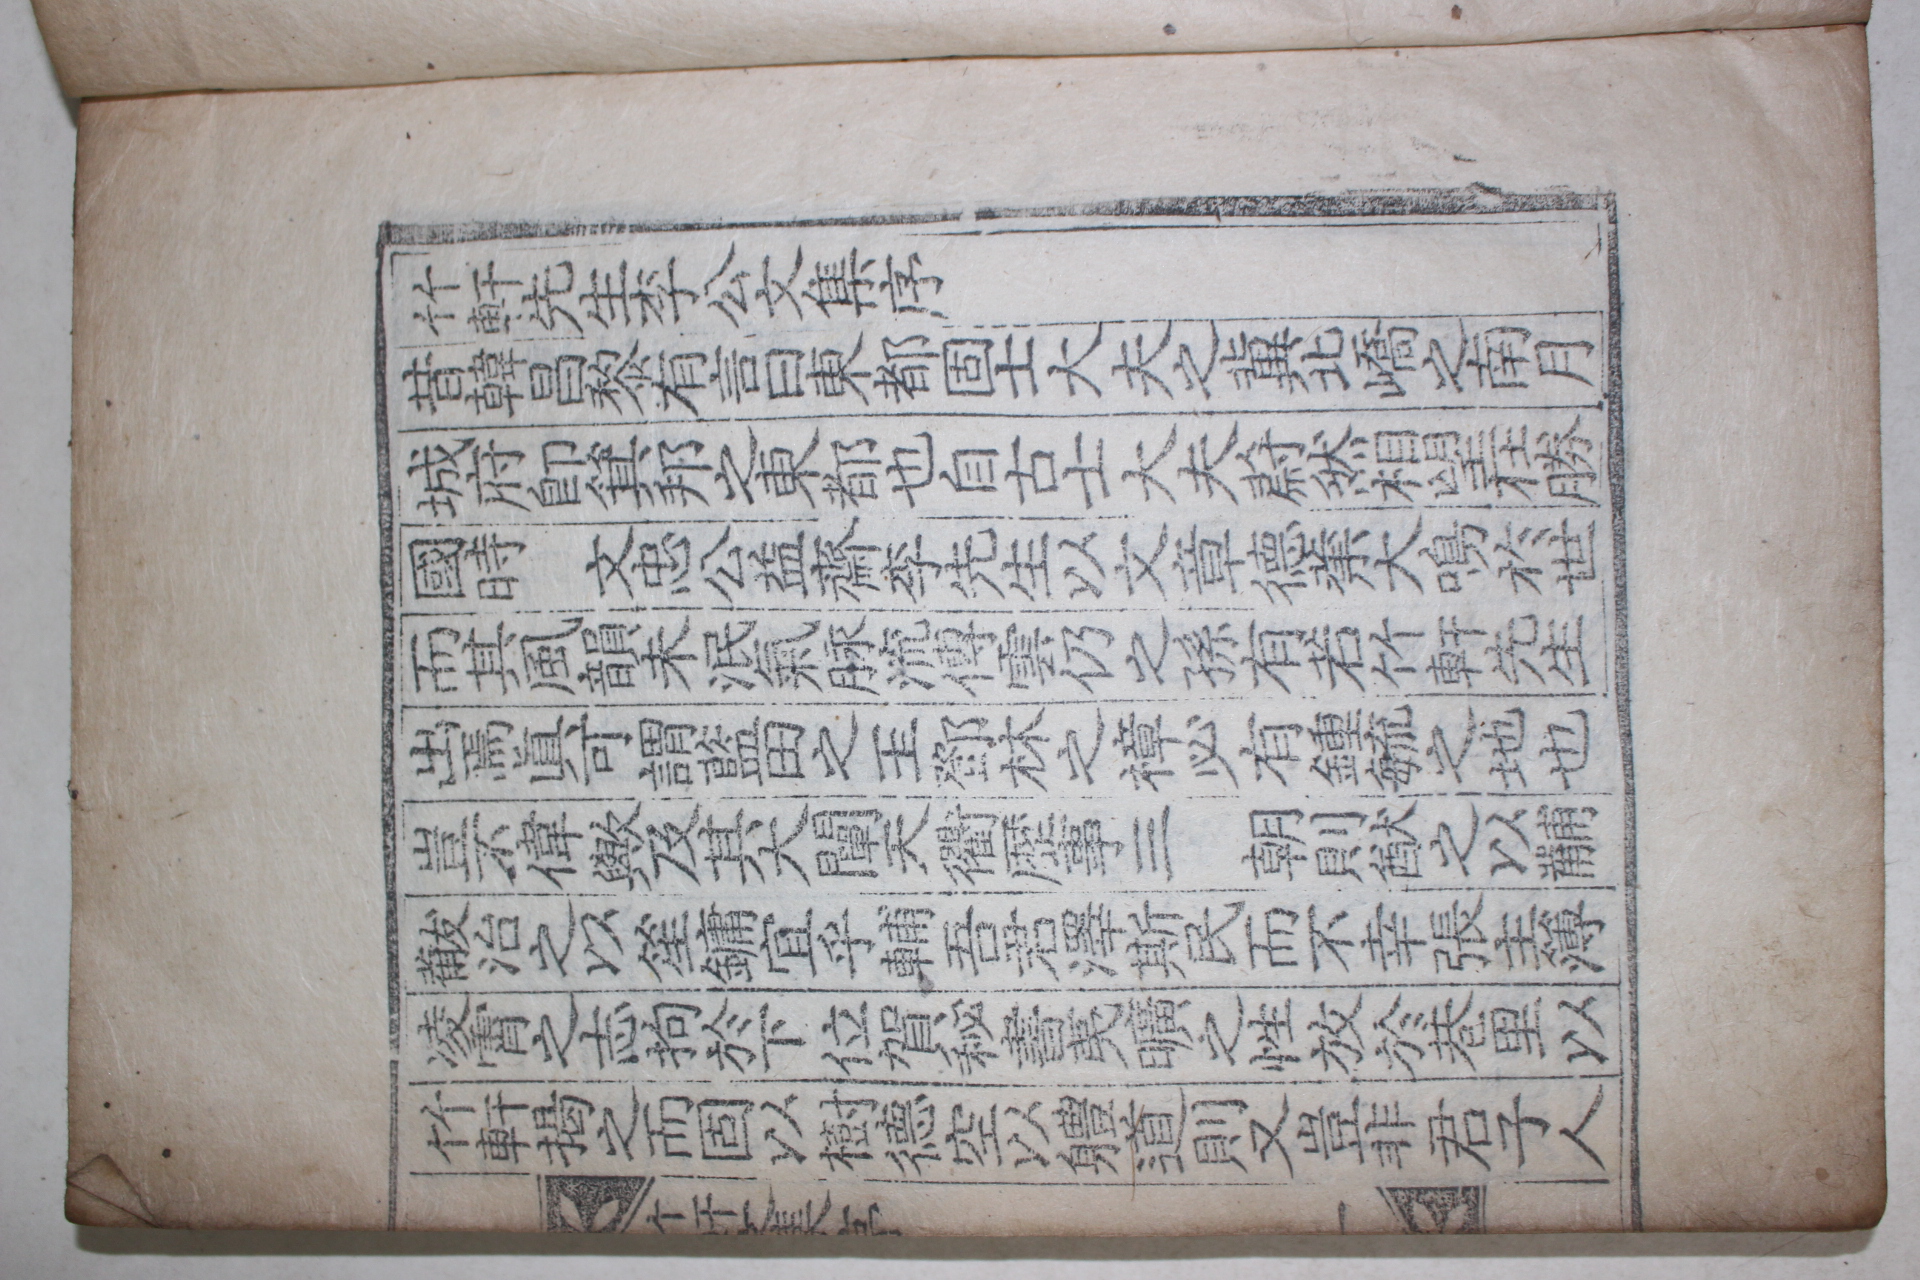 竹軒先生李公文集序
昔韓昌黎有言曰東都固士大夫之冀北嶠之南月
城府卽箕邦之東都也自古士大夫蔚然相望在勝
國時 文忠公益齋李先生以文章德業大鳴於世
而其風韻未泯氣脉流傳雲仍之孫有若竹軒先生
出焉眞可謂藍田之玉鄧林之樟必有鍾毓之地也
豈不偉歟及其大闡天衢歷事三 朝則猷之以黼
黻治之以笙鏞宜乎輔吾君澤斯民而不幸張主簿
凌霄之志拘於下位賀秘書夷曠之性放於巷里以
竹軒揭之而固以樹德空以軆道則又豈非君子人
竹軒文集序
一